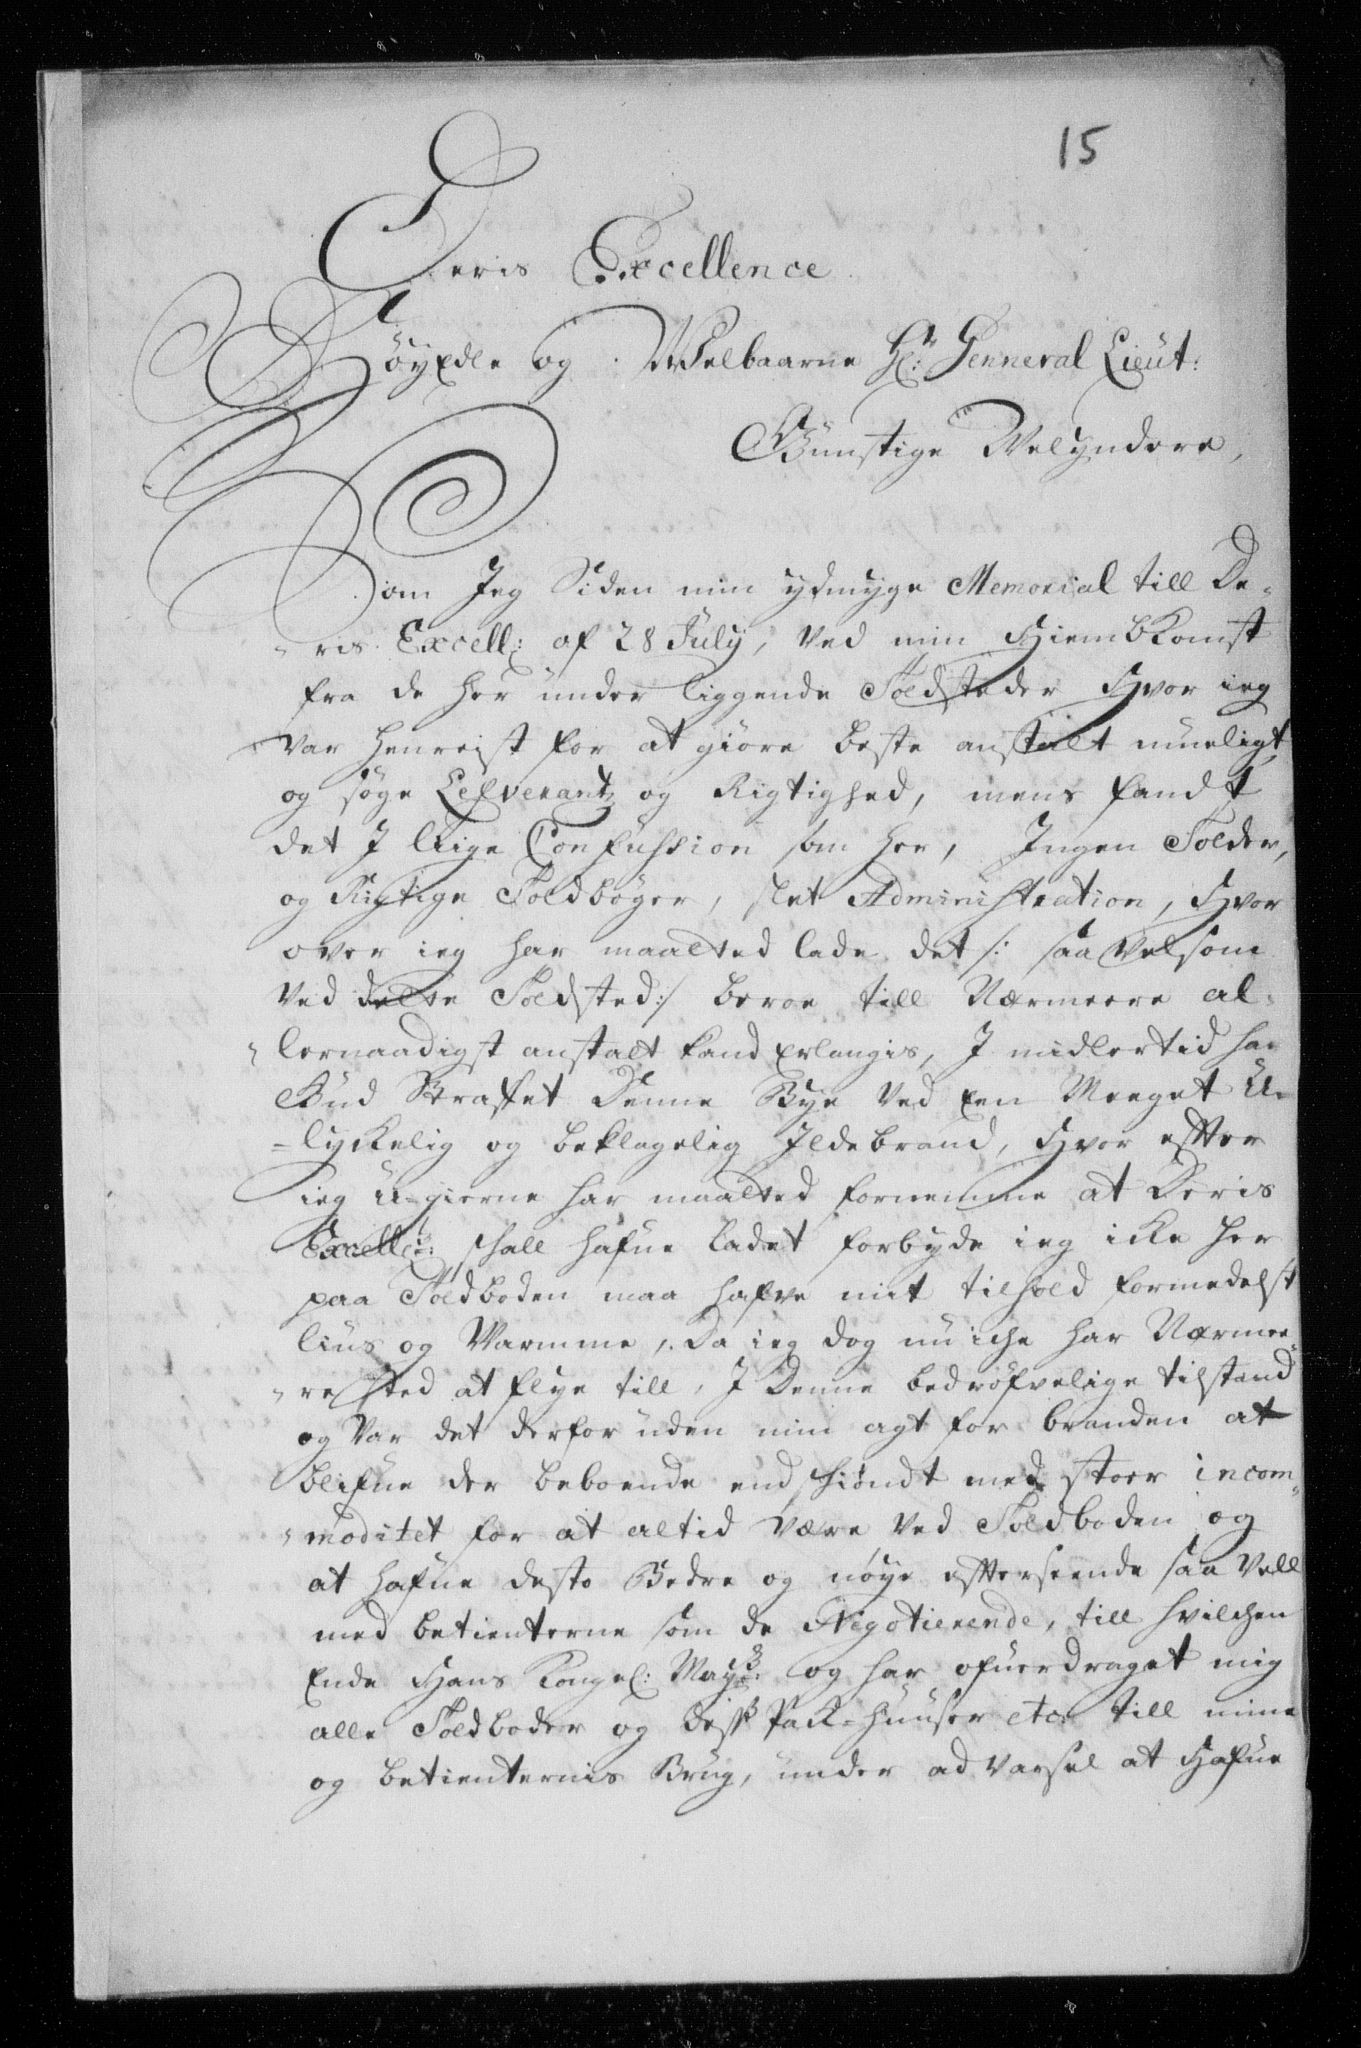 15
Deris Excellence
Höyedle og Welbaarne Hr: Genneral Lieut:
Gunstige Welyndere,
Som Jeg Siden min ydmyge Memorial till De-
ris Excell: af 28 July, ved min Hiembkomst
fra de her under liggende Toldsteder Hvor ieg
var henreist for at giöre beste anstalt mueligt
og söge Lefverantz og Rigtighed, mens fandt
det J liige Confussion som her, Ingen Tolder,
og Rigtige Toldböger, slet Administration, Hvor
over ieg har maatted lade det /: saa velsom
ved dette Toldsted :/ beroe till Nærmeere al-
lernaadigst anstalt kand erlangis, J midlertid har
Gud Straffet Denne Bye ved een Meeget U-
lyckelig og beklagelig Jldebrand, Hvor effter
ieg u-gierne har maatted fornemme at Deris
Excell: schall hafue ladet forbyde ieg icke her
paa Toldboden maa hafve mit tilhold formedelst
lius og Varmme, Da ieg dog nu iche har Nærmee-
re sted at flye till, J Denne bedröfvelige tilstand
og var det derfor uden min agt for branden at
blifue der beboende endschiöndt med stoer incom-
moditet for at altid være ved Toldboden og
at hafue desto Bedre og nöye effterseende saa vell
med betienterne som de Negotierende, till hvilchen
Ende Hans Kongel: Mayt: og har ofuerdraget mig
alle Toldboder og diss Pack-Huuser etc till mine
og betienternis Brug, under advarsel at Hafue